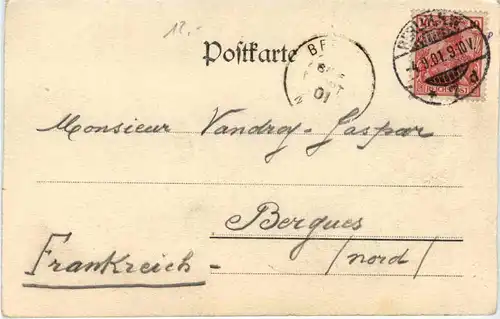 12.-
Postkarte
REICHSPOST
9-10V.
01
Monsieur Vandroy-Gaspar
Bergues
(nord)
Frankreich-